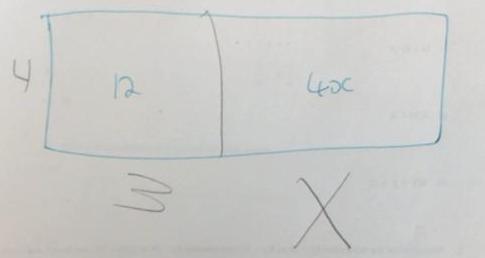 4 12 4x
3 X